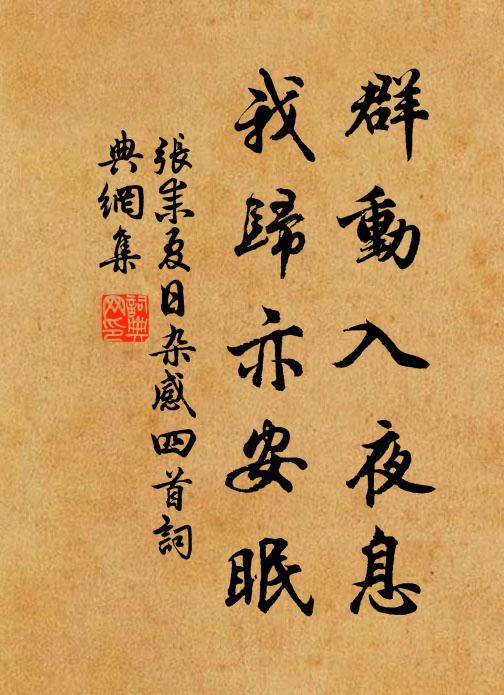 群動入夜息
我歸亦安眠
張耒夏日杂感四首詞
典網集
詞典网印